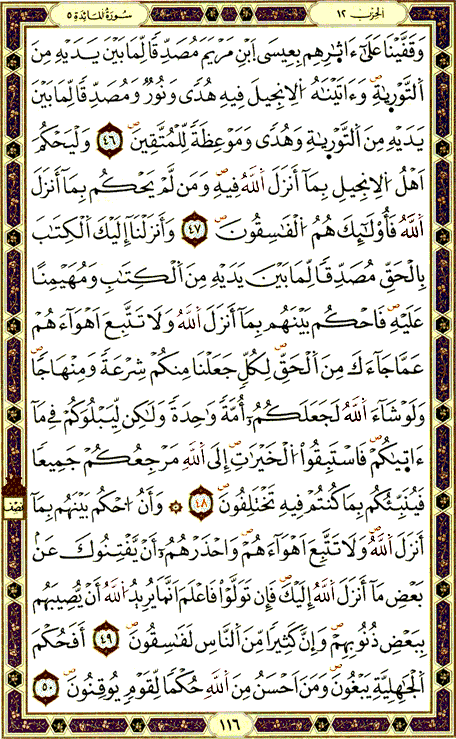 الحزب ١٢
سُورَةُ المَائِدَة ٥
وَقَفَّيْنَا عَلَىٰٓ ءَاثٰ۪رِهِم بِعِيسَى اَبْنِ مَرْيَمَ مُصَدِّقاٗ لِّمَا بَيْنَ يَدَيْهِ مِنَ
اَ۬لتَّوْر۪يٰةِۖ وَءَاتَيْنَٰهُ اُ۬لِانجِيلَ فِيهِ هُدىٗ وَنُورٞ وَمُصَدِّقاٗ لِّمَا بَيْنَ
يَدَيْهِ مِنَ اَ۬لتَّوْر۪يٰةِ وَهُدىٗ وَمَوْعِظَةٗ لِّلْمُتَّقِينَۖ ٤٦ وَلْيَحْكُمَ
اَهْلُ اُ۬لِانجِيلِ بِمَآ أَنزَلَ اَ۬للَّهُ فِيهِۖ وَمَن لَّمْ يَحْكُم بِمَآ أَنزَلَ
اَ۬للَّهُ فَأُوْلَٰٓئِكَ هُمُ اُ۬لْفَٰسِقُونَۖ ٤٧ وَأَنزَلْنَآ إِلَيْكَ اَ۬لْكِتَٰبَ
بِالْحَقِّ مُصَدِّقاٗ لِّمَا بَيْنَ يَدَيْهِ مِنَ اَ۬لْكِتَٰبِ وَمُهَيْمِناً
عَلَيْهِۖ فَاحْكُم بَيْنَهُم بِمَآ أَنزَلَ اَ۬للَّهُ وَلَا تَتَّبِعَ اَهْوَآءَهُمْ
عَمَّا جَآءَكَ مِنَ اَ۬لْحَقِّۖ لِكُلّٖ جَعَلْنَا مِنكُمْ شِرْعَةٗ وَمِنْهَاجاٗۖ
وَلَوْ شَآءَ اَ۬للَّهُ لَجَعَلَكُمُۥٓ أُمَّةٗ وَٰحِدَةٗ وَلَٰكِن لِّيَبْلُوَكُمْ فِے مَآ
ءَات۪يٰكُمْۖ فَاسْتَبِقُواْ اُ۬لْخَيْرَٰتِۖ إِلَى اَ۬للَّهِ مَرْجِعُكُمْ جَمِيعاٗ
فَيُنَبِّئُكُم بِمَا كُنتُمْ فِيهِ تَخْتَلِفُونَۖ ٤٨ ۞ وَأَنُ اُ۟حْكُم بَيْنَهُم بِمَآ
نصف
أَنزَلَ اَ۬للَّهُۖ وَلَا تَتَّبِعَ اَهْوَآءَهُمْۖ وَاحْذَرْهُمُۥٓ أَنْ يَّفْتِنُوكَ عَنۢ
بَعْضِ مَآ أَنزَلَ اَ۬للَّهُ إِلَيْكَۖ فَإِن تَوَلَّوْاْ فَاعْلَمَ اَنَّمَا يُرِيدُ اُ۬للَّهُ أَنْ يُّصِيبَهُم
بِبَعْضِ ذُنُوبِهِمْۖ وَإِنَّ كَثِيراٗ مِّنَ اَ۬لنَّاسِ لَفَٰسِقُونَۖ ٤٩ أَفَحُكْمَ
اَ۬لْجَٰهِلِيَّةِ يَبْغُونَۖ وَمَنَ اَحْسَنُ مِنَ اَ۬للَّهِ حُكْماٗ لِّقَوْمٖ يُوقِنُونَۖ ٥٠
١١٦